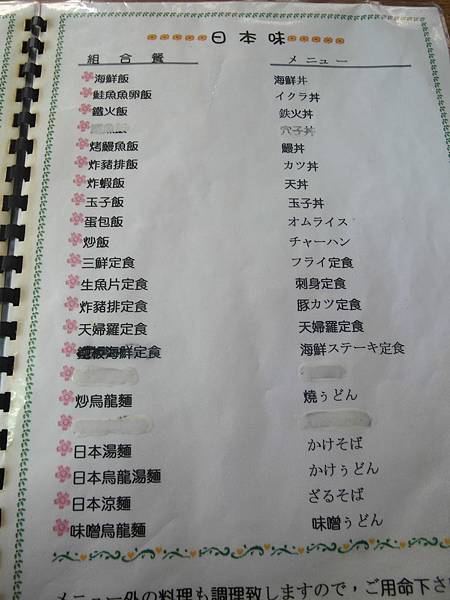 日本味
組合餐 メニュー
海鮮飯 海鮮丼
鮭魚魚卵飯 イクラ丼
鐵火飯 鉄火丼
穴子丼
烤鰻魚飯 鰻丼
炸豬排飯 カツ丼
炸蝦飯 天丼
玉子飯 玉子丼
蛋包飯 オムライス
炒飯 チャーハン
三鮮定食 フライ定食
生魚片定食 刺身定食
炸豬排定食 豚カツ定食
天婦羅定食 天婦羅定食
鐵板海鮮定食 海鮮ステーキ定食
炒烏龍麵 燒うどん
日本湯麵 かけそば
日本烏龍湯麵 かけぅどん
日本涼麵 ざるそば
味噌烏龍麵 味噌ぅどん
メニュー外の料理も調理致しますので，ご用命下さ